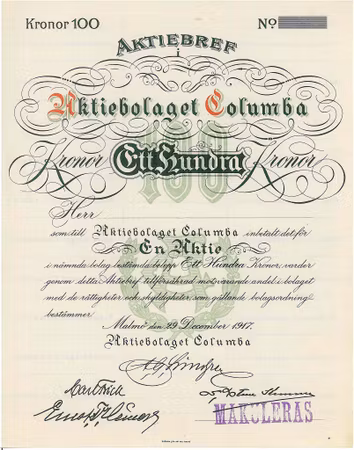 Kronor 100 No
AKTIEBREF
i
Aktiebolaget Columba
Kronor Ett Hundra Kronor
100
Herr
som till Aktiebolaget Columba inbetalt det för
En Aktie
i nämnda bolag bestämda belopp Ett Hundra Kronor, varder
genom detta Aktiebref tillförsäkrad motsvarande andel i bolaget
med de rättigheter och skyldigheter, som gällande bolagsordning
bestämmer.
Malmö den 29 December 1917.
Aktiebolaget Columba
MAKULERAS